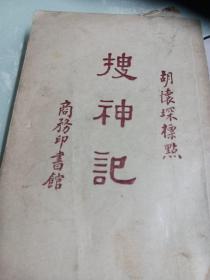 胡懷琛標點
搜神記
商務印書館